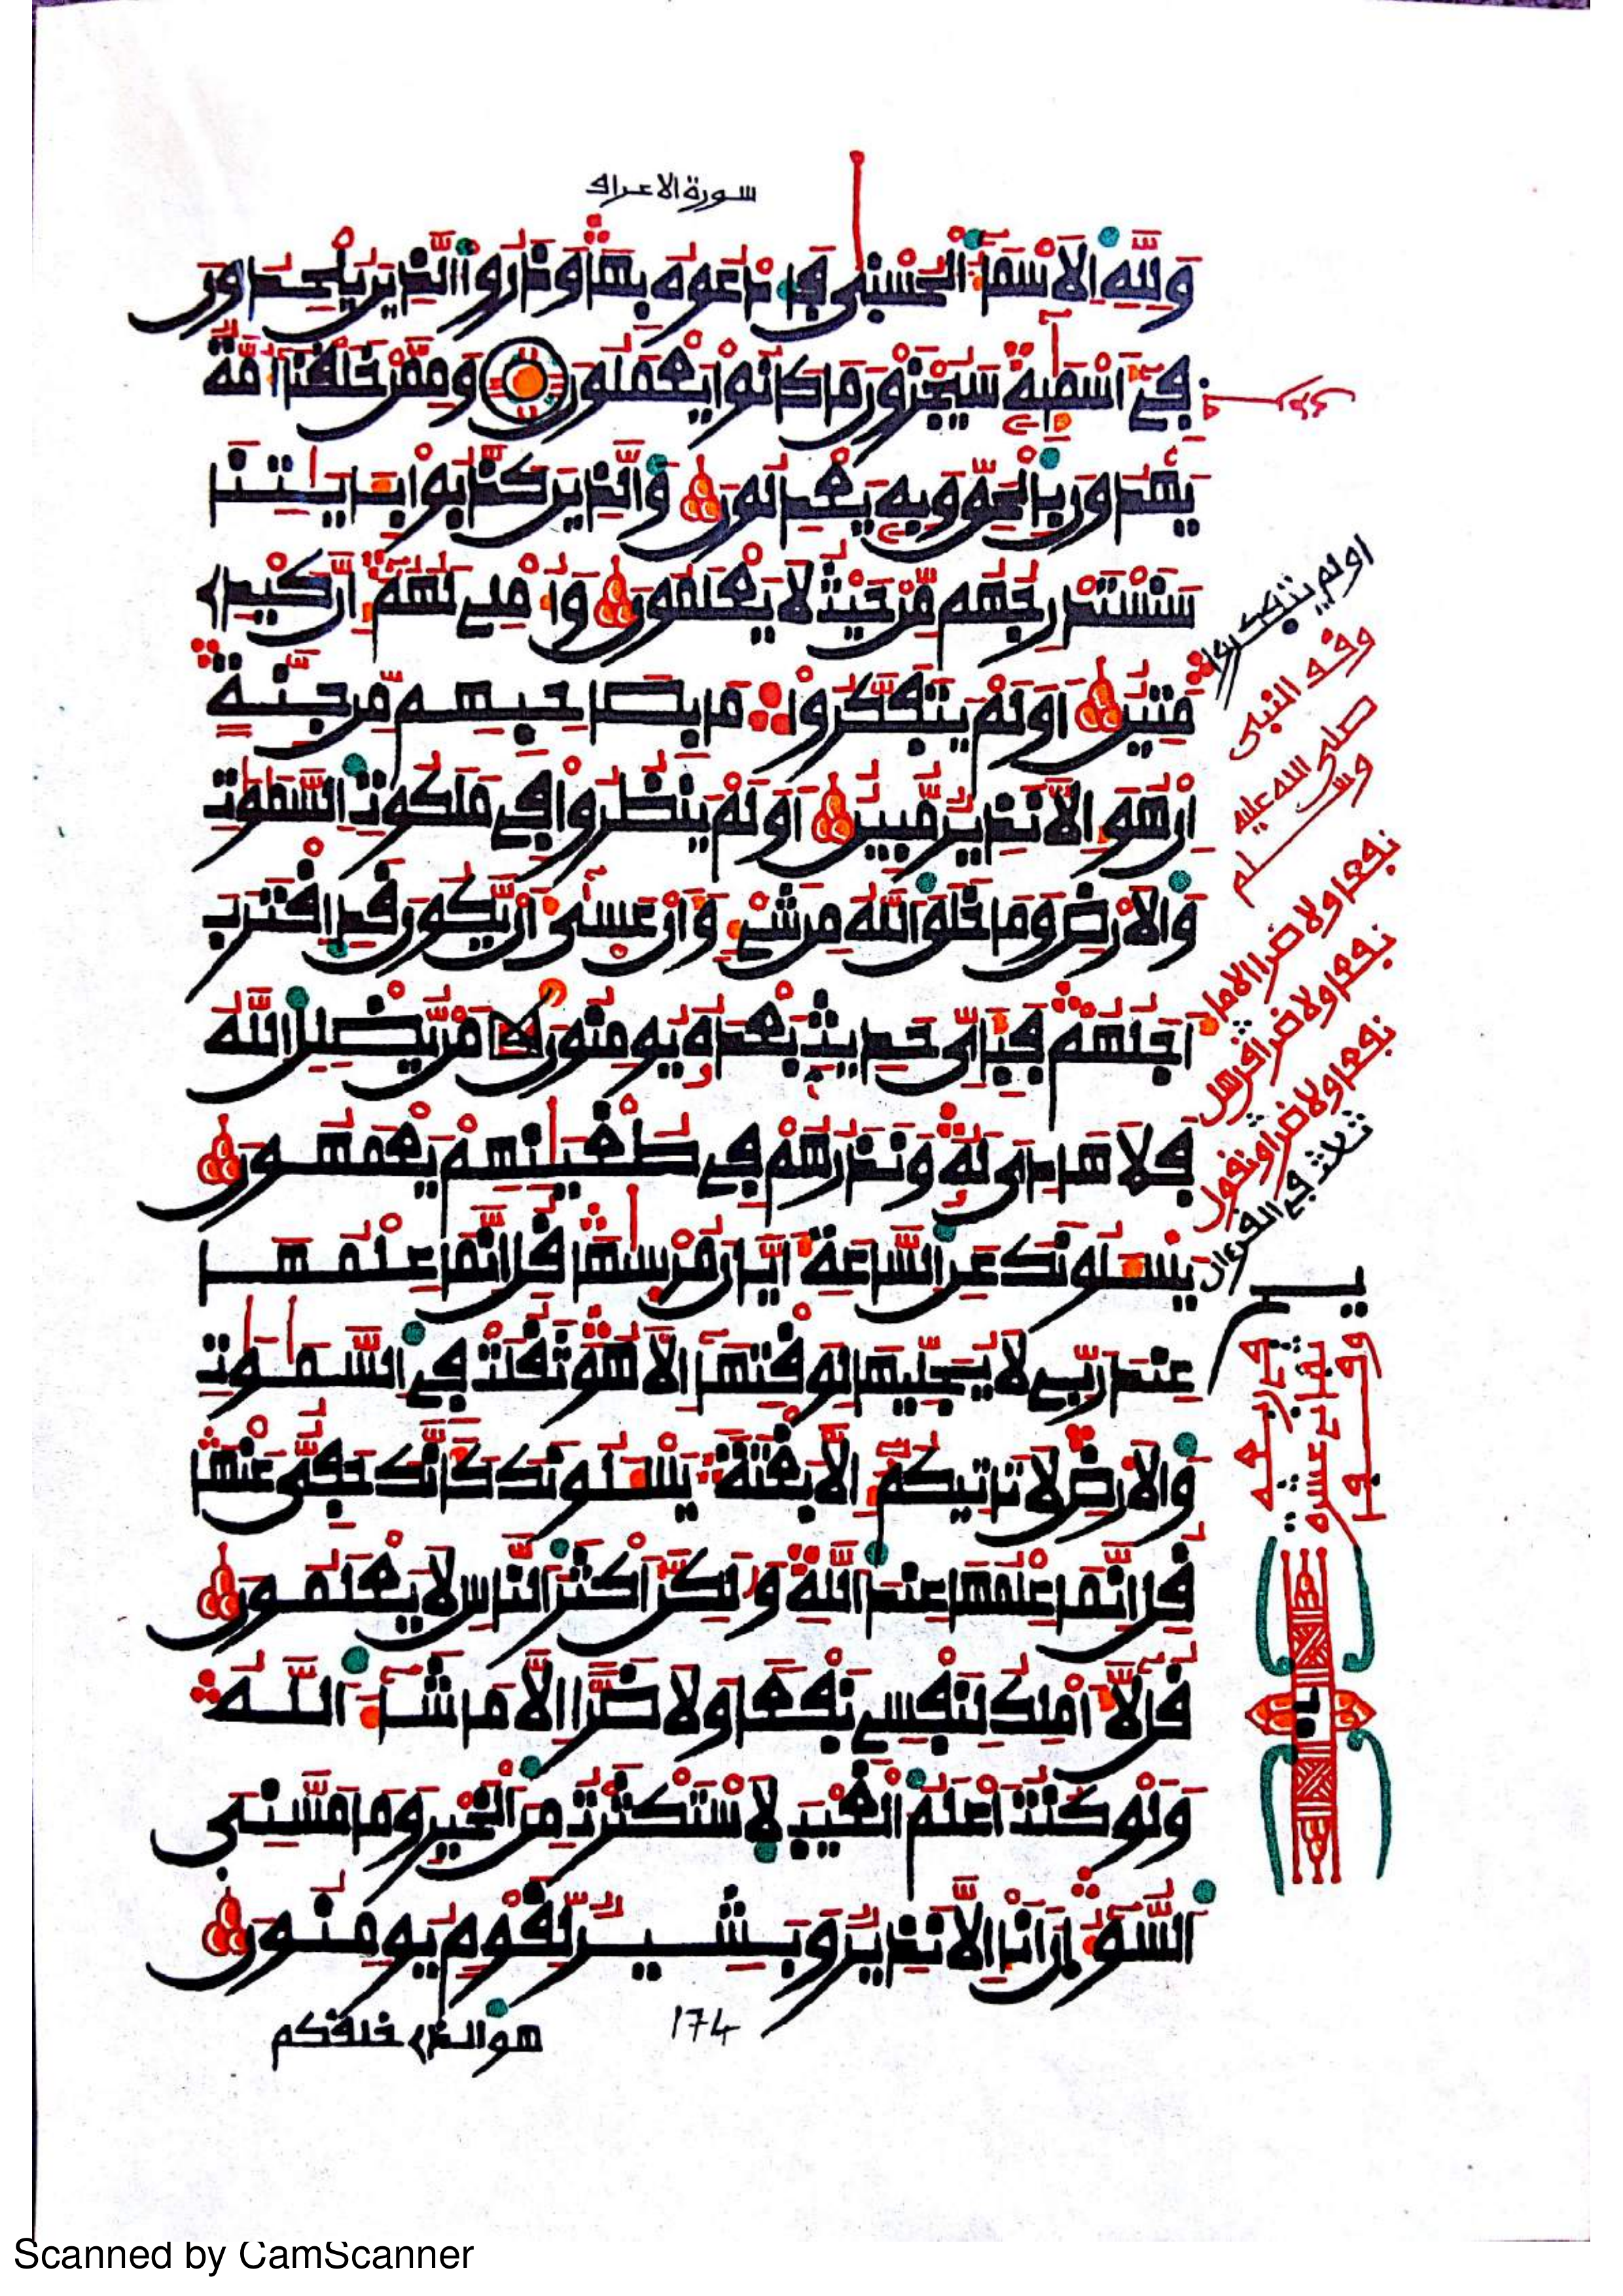 سورة الاعراف
وَلِلهِ اِلَاسْمَآءُ اُلْحُسْنٰى فَادْعُوهُ بِهَا وَذَرُوا اُلذِينَ يُلْحِدُونَ
فِےٓ أَسْمَٰٓئِهِ سَيُجْزَوْنَ مَا كَانُوا يَعْمَلُونَ وَمِمَّنْ خَلَقْنَا أُمَّةٌ
يَهْدُونَ بِالْحَقِّ وَبِهِ يَعْدِلُونَ وَالذِينَ كَذَّبُوا بِـَٔايَٰتِنَا
سَنَسْتَدْرِجُهُم مِّنْ حَيْثُ لَا يَعْلَمُونَ وَأُمْلِے لَهُمُ إِنَّ كَيْدِے
مَتِينٌ اَوَلَمْ يَتَفَكَّرُوا مَا بِصَاحِبِهِم مِّن جِنَّةٍ
اِنْ هُوَ إِلَّا نَذِيرٌ مُّبِينٌ اَوَلَمْ يَنظُرُوا فِي مَلَكُوتِ اِلسَّمَٰوَٰتِ
وَالَارْضِ وَمَا خَلَقَ اَللهُ مِن شَيْءٍ وَأَنْ عَسٰىٓ أَنْ يَّكُونَ قَدِ اِقْتَرَبَ
أَجَلُهُمْ فَبِأَيِّ حَدِيثٍ بَعْدَهُ يُومِنُونَ مَنْ يُّضْلِلِ اِللهُ
فَلَا هَادِيَ لَهُ وَنَذَرُهُمْ فِي طُغْيَٰنِهِمْ يَعْمَهُونَ
يَسْـَٔلُونَكَ عَنِ اِلسَّاعَةِ أَيَّانَ مُرْسَٰهَا قُلِ اِنَّمَا عِلْمُهَا
عِندَ رَبِّے لَا يُجَلِّيهَا لِوَقْتِهَآ إِلَّا هُوَ ثَقُلَتْ فِي اِلسَّمَٰوَٰتِ
وَالَارْضِ لَا تَاتِيكُمُ إِلَّا بَغْتَةً يَسْـَٔلُونَكَ كَأَنَّكَ حَفِيٌّ عَنْهَا
قُلِ اِنَّمَا عِلْمُهَا عِندَ اَللهِ وَلَٰكِنَّ أَكْثَرَ اَلنَّاسِ لَا يَعْلَمُونَ
قُل لَّآ أَمْلِكُ لِنَفْسِے نَفْعًا وَلَا ضَرًّا اِلَّا مَا شَآءَ اَللهُ
وَلَوْ كُنتُ أَعْلَمُ اُلْغَيْبَ لَاسْتَكْثَرْتُ مِنَ اَلْخَيْرِ وَمَا مَسَّنِيَ
اَلسُّوٓءُ اِنَ اَنَا إِلَّا نَذِيرٌ وَبَشِيرٌ لِّقَوْمٍ يُومِنُونَ
هو الذے خلقكم
174
اولم يتفكروا
وقف النبى
صلى الله عليه
وسلم
نفعا ولا ضرا الا ما
نفعا ولا ضرا قل هل
نفعا ولا ضرا ونقول
ثلاث في القرءان
Scanned by CamScanner